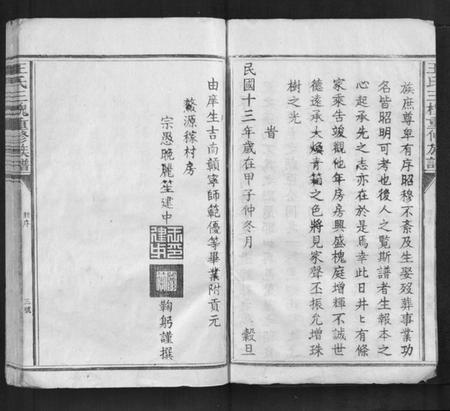 族庶尊卑有序昭穆不紊及生娶歿葬事業功
名皆昭明可考也後人之覽斯譜者生報本之
心起承先之志亦在於是焉幸此日井上有條
家乘告竣觀他年房房興盛槐庭增輝不誠世
德遠承大煥青箱之色將見家聲丕振允增珠
樹之光
旹
民國十三年歲在甲子仲冬月 穀旦
由庠生吉南贛寧師範優等畢業附貢元
鰲源稼村房
宗愚晚麗笙建中 鞠躬謹撰
王氏三槐重修族譜